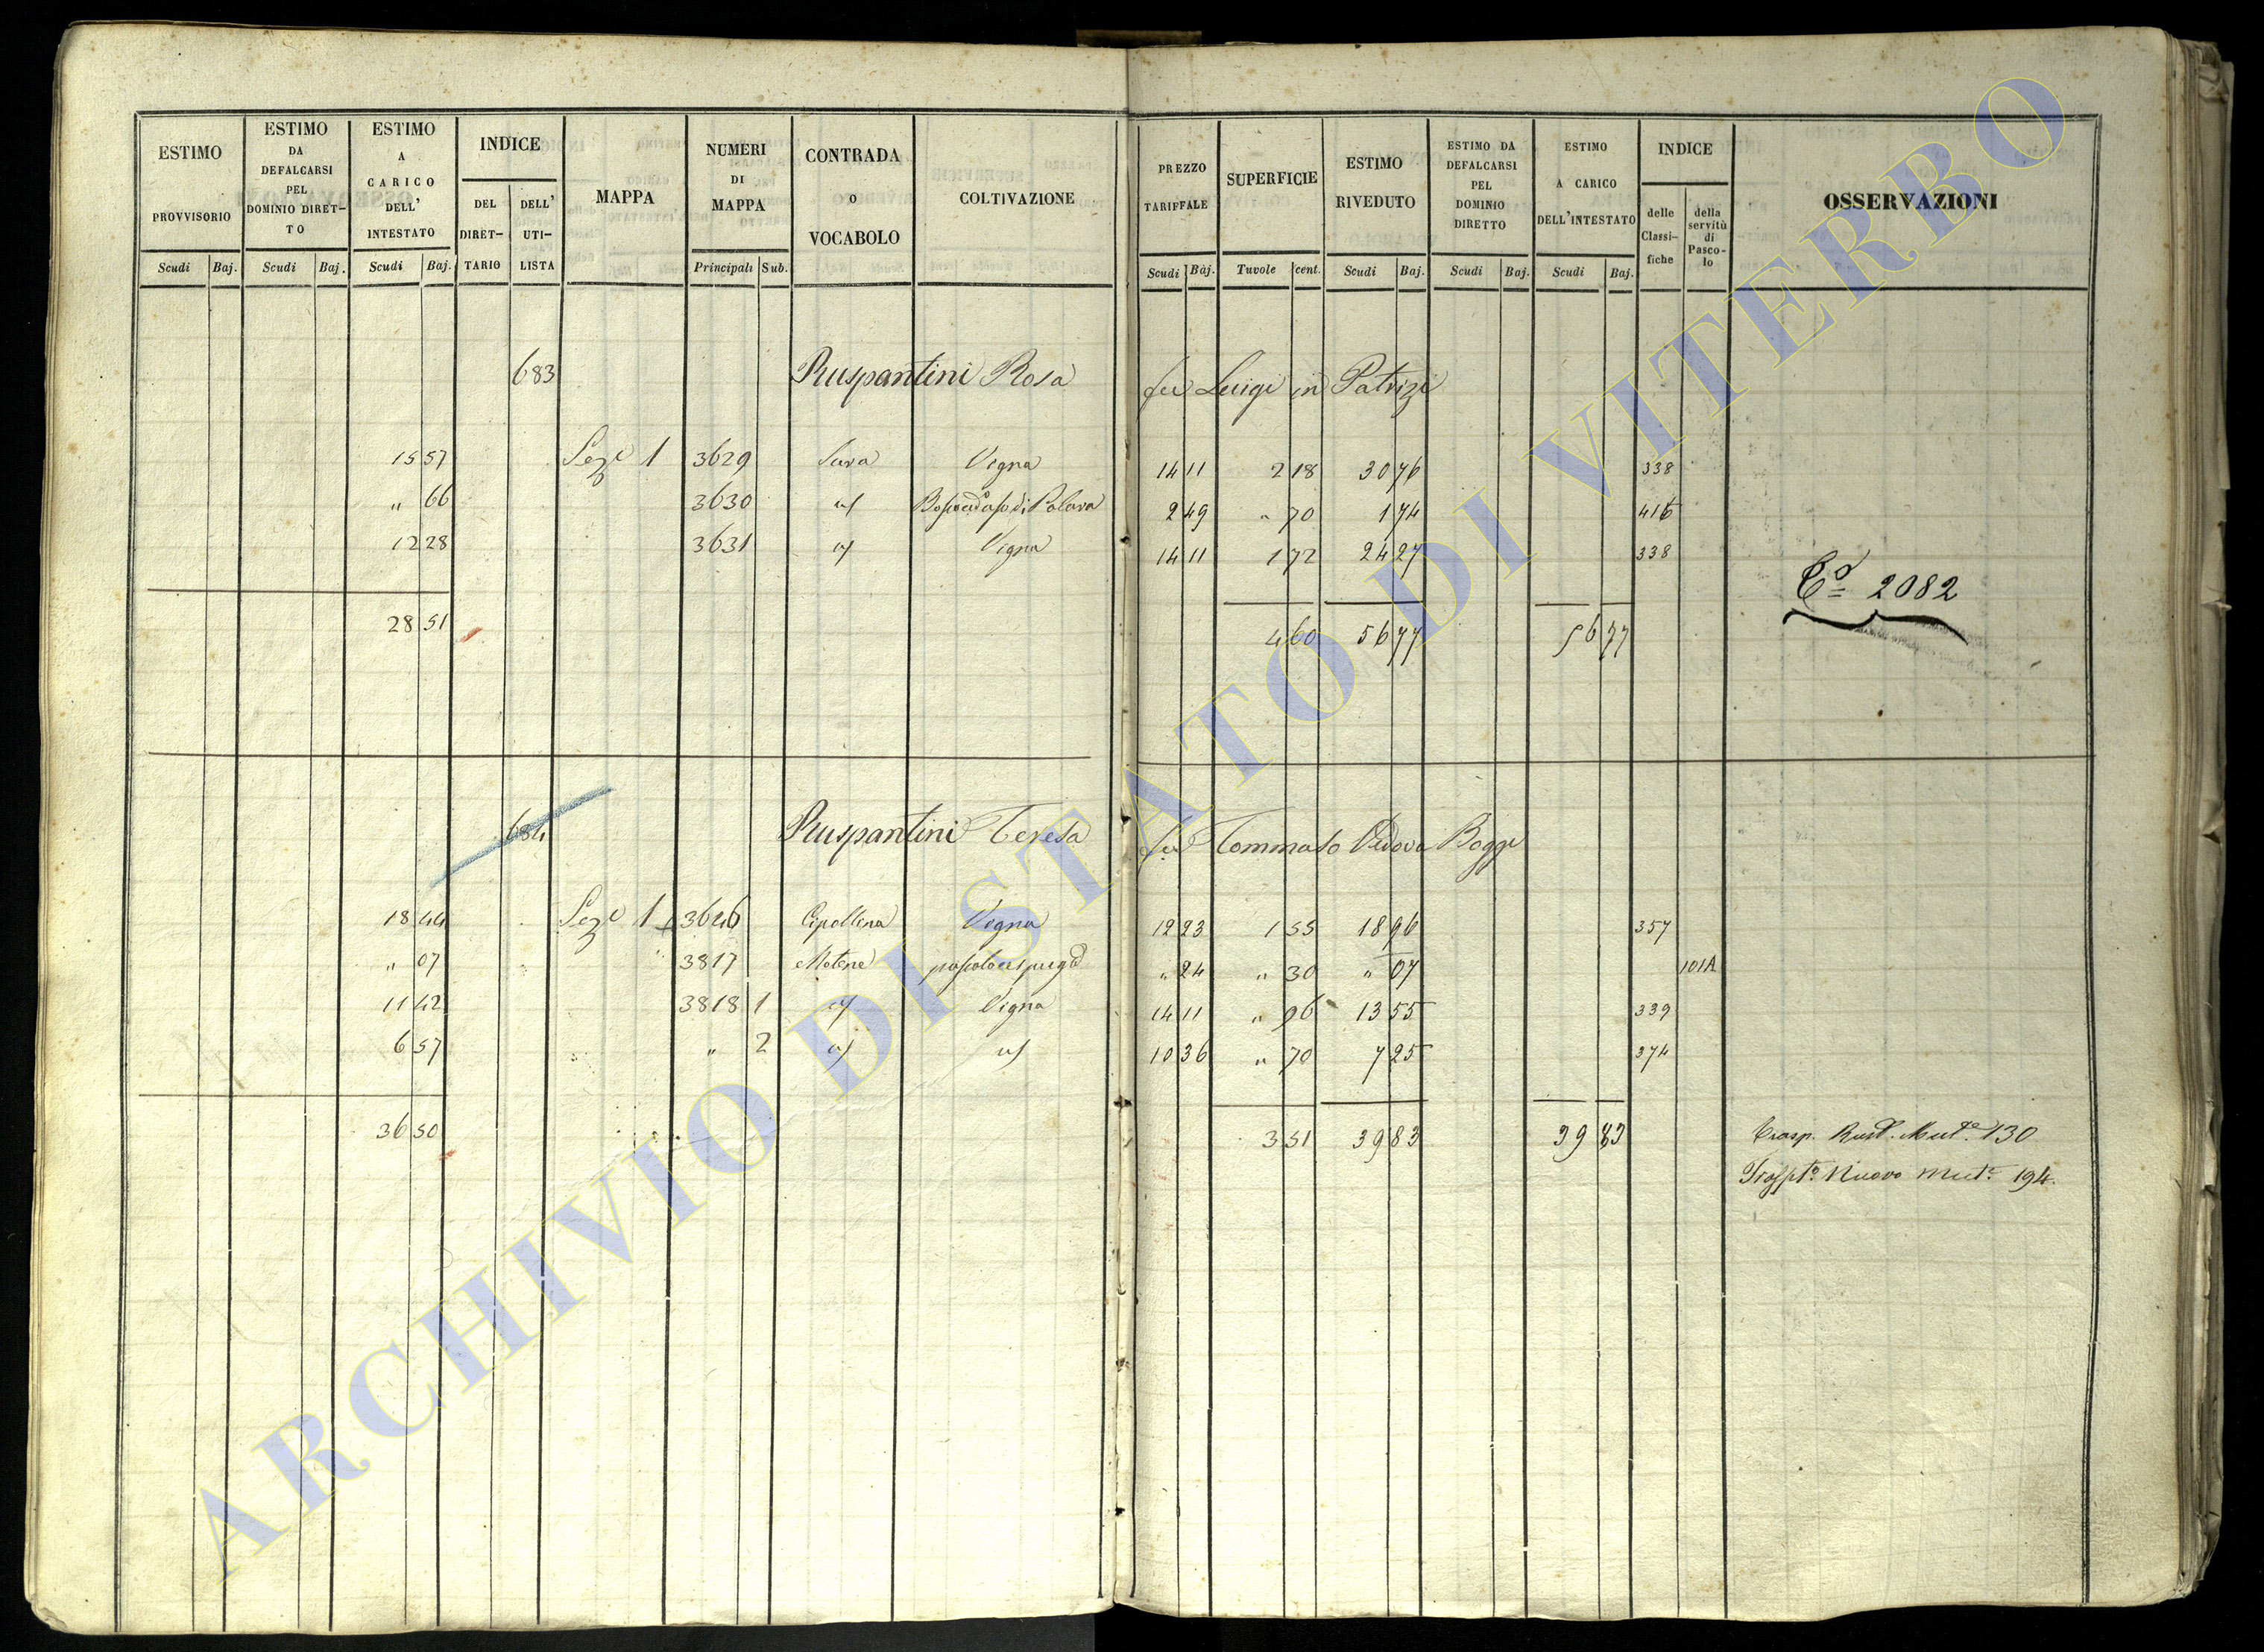 ESTIMO PROVVISORIO Scudi Baj.
ESTIMO DA DEFALCARSI PEL DOMINIO DIRET-TO Scudi Baj.
ESTIMO A CARICO DELL' INTESTATO Scudi Baj.
INDICE DEL DIRET-TARIO DELL' UTI-LISTA
MAPPA
NUMERI DI MAPPA Principali Sub.
CONTRADA O VOCABOLO
COLTIVAZIONE
PREZZO TARIFFALE Scudi Baj.
SUPERFICIE Tavole cent.
ESTIMO RIVEDUTO Scudi Baj.
ESTIMO DA DEFALCARSI PEL DOMINIO DIRETTO Scudi Baj.
ESTIMO A CARICO DELL'INTESTATO Scudi Baj.
INDICE delle Classi-fiche della servitù di Pasco-lo
OSSERVAZIONI
683 Ruspantini Rosa fu Luigi in Patrizi
15 57 Seze 1 3629 Sara Vigna 14 11 2 18 30 76 338
" 66 3630 " 2 49 " 70 1 74 416
12 28 3631 " Vigna 14 11 1 72 24 27 338
Co 2082
28 51 4 60 56 77 56 77
684 Ruspantini Teresa fu Tommaso Vedova Boggi
18 44 Seze 1 + 3646 Cipollina Vigna 12 23 1 55 18 96 357
" 07 3817 " 24 " 30 " 07 101A
11 42 3818 1 " Vigna 14 11 " 96 13 55 339
6 57 " 2 " " 10 36 " 70 7 25 374
36 50 3 51 39 83 39 83 Trasp. Rust. Mute 130
Traspto Nuovo Mute 194.
ARCHIVIO DI STATO DI VITERBO